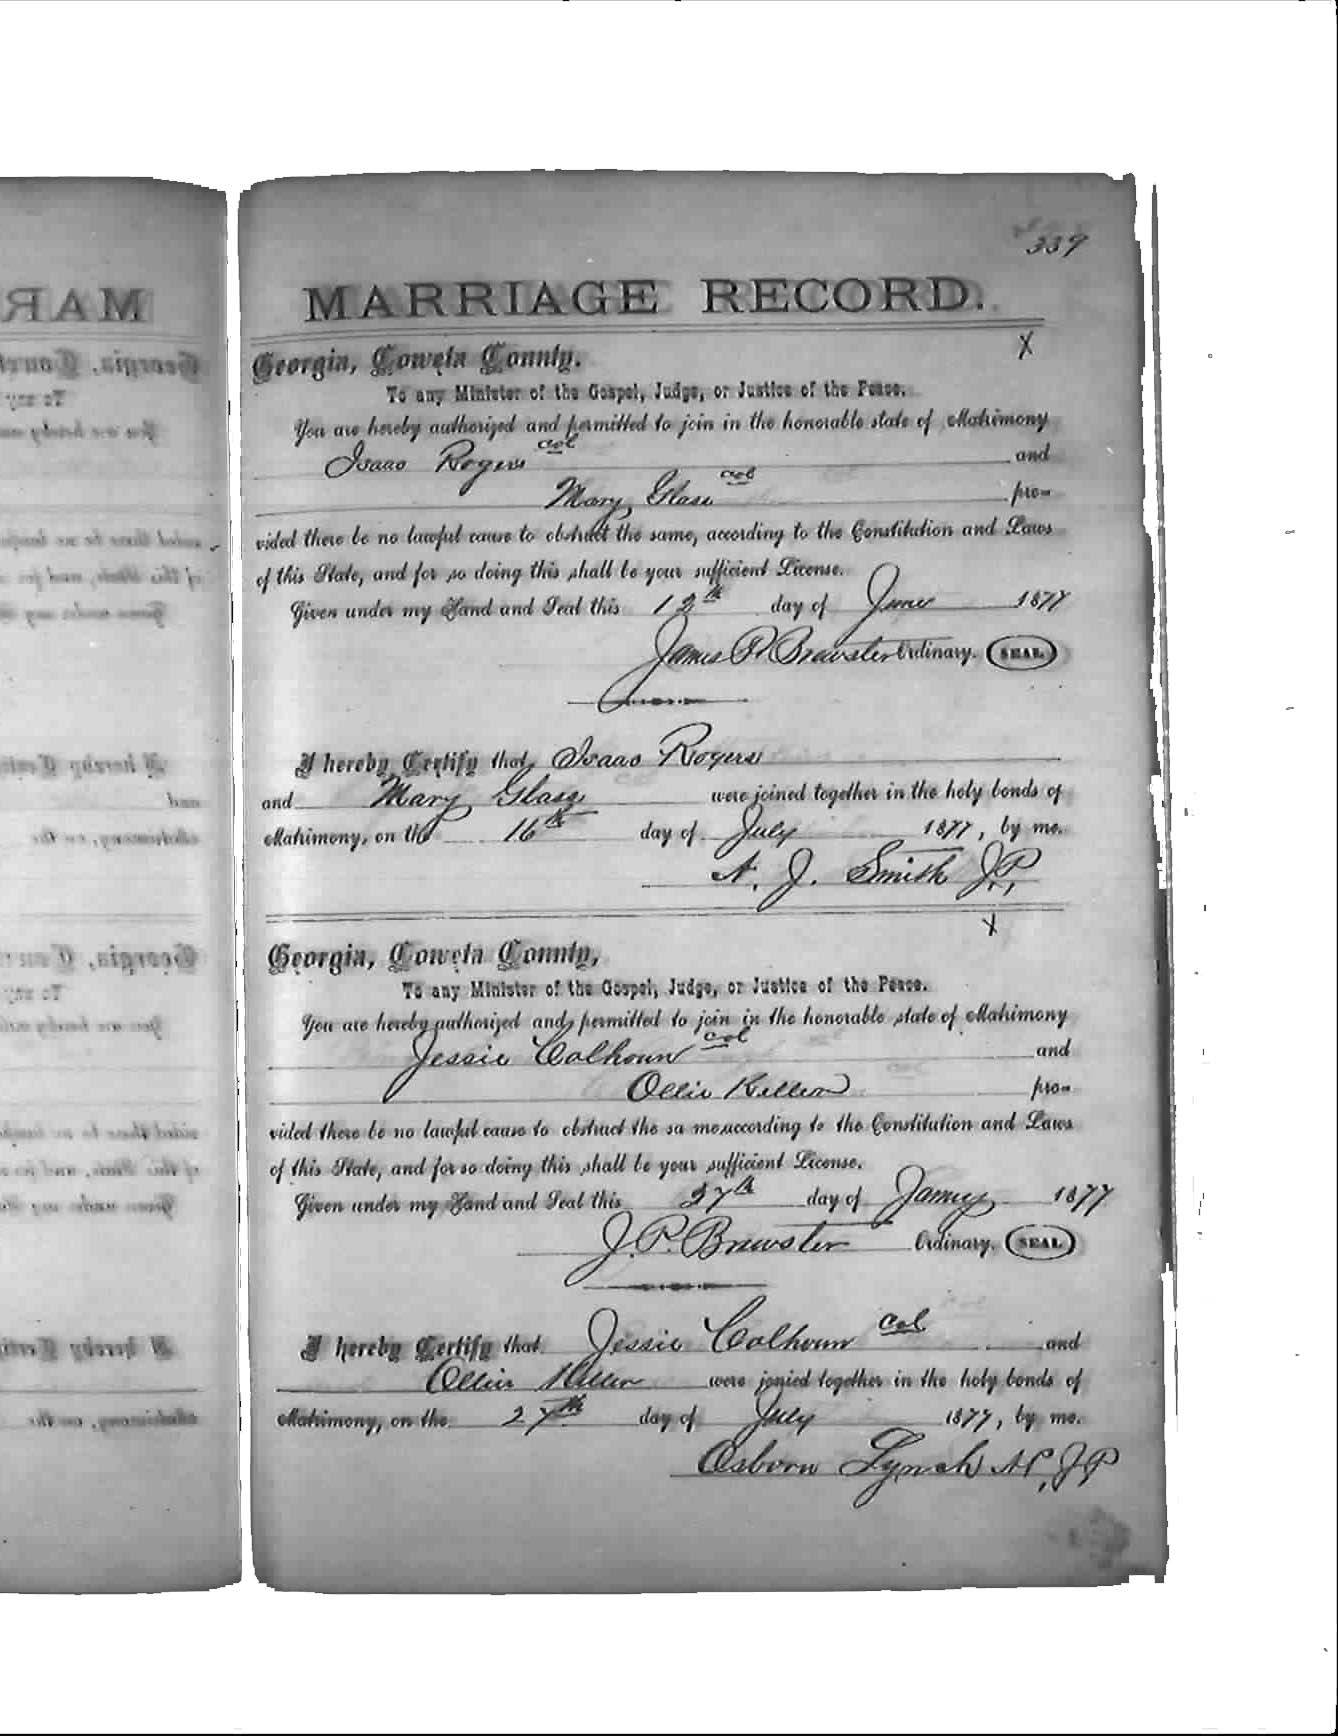 339
MARRIAGE RECORD.
X
Georgia, Coweta County.
To any Minister of the Gospel, Judge, or Justice of the Peace.
You are hereby authorized and permitted to join in the honorable state of Matrimony
Isaac Rogers col and
Mary Glass col pro-
vided there be no lawful cause to obstruct the same, according to the Constitution and Laws
of this State, and for so doing this shall be your sufficient License.
Given under my Hand and Seal this 12th day of June 1877
James P. Brewster Ordinary. SEAL
I hereby Certify that Isaac Rogers
and Mary Glass were joined together in the holy bonds of
Matrimony, on the 16th day of July 1877, by me.
A. J. Smith J.P.,
X
Georgia, Coweta County,
To any Minister of the Gospel, Judge, or Justice of the Peace.
You are hereby authorized and permitted to join in the honorable state of Matrimony
Jessie Calhoun col and
Ollie pro-
vided there be no lawful cause to obstruct the sa me, according to the Constitution and Laws
of this State, and for so doing this shall be your sufficient License.
Given under my Hand and Seal this 27th day of 1877
J. P. Brewster Ordinary. SEAL
I hereby Certify that Jessie Calhoun col and
Ollie were jonied together in the holy bonds of
Matrimony, on the 27th day of July 1877, by me.
Osborn Lynch N.P., J.P.